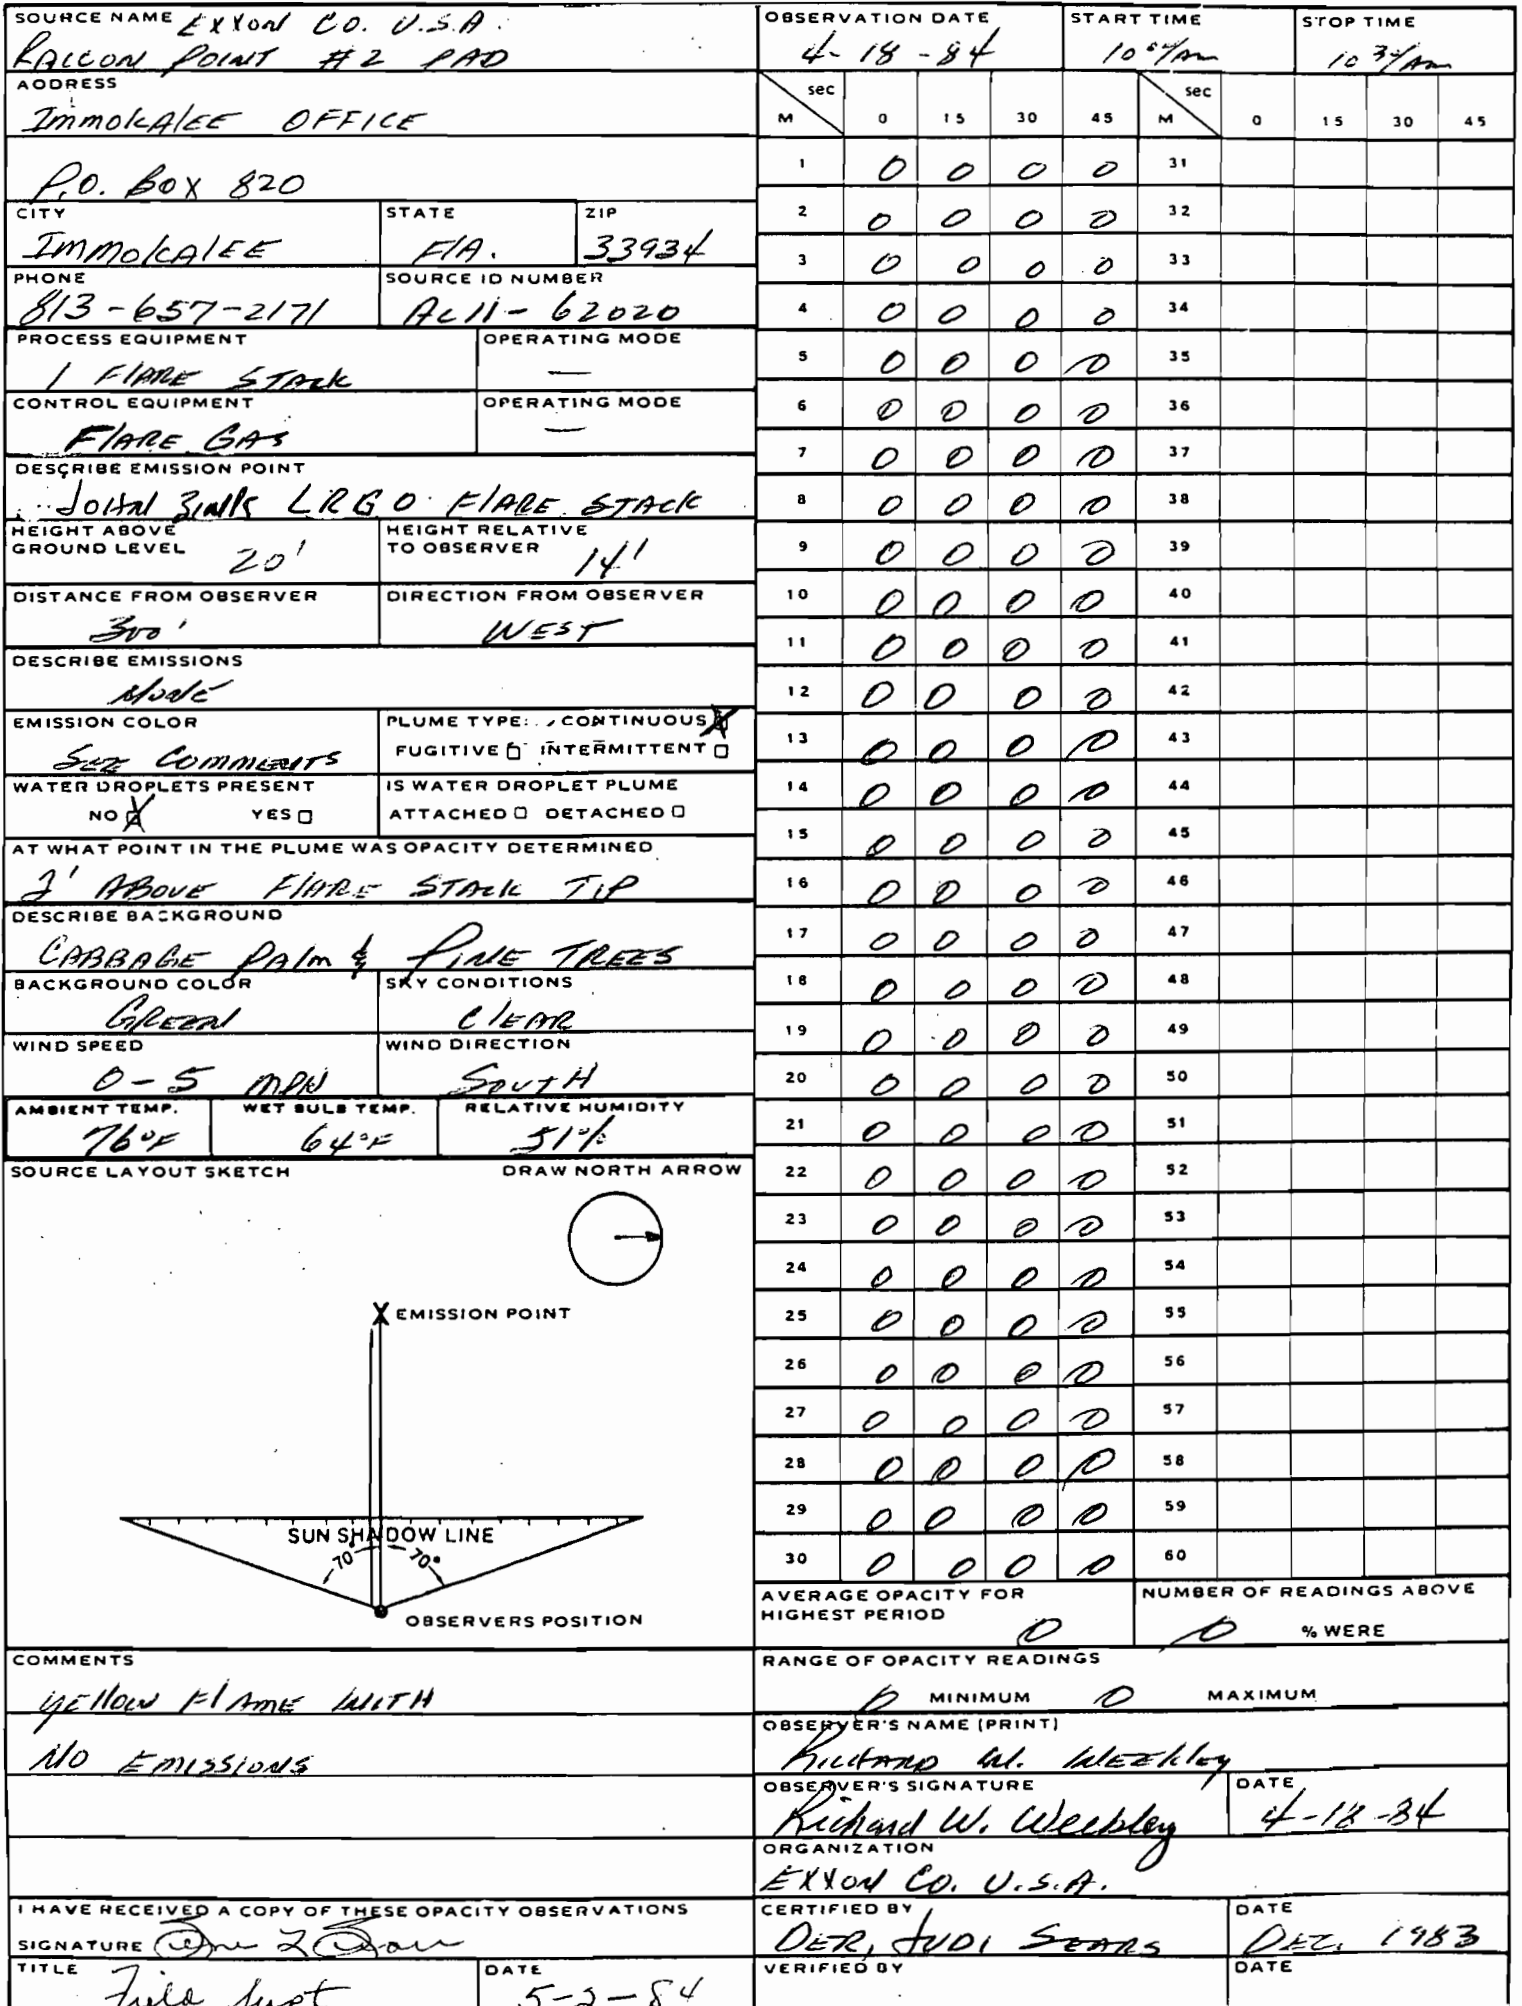 SOURCE NAME EXXON CO. U.S.A.
RACCOON POINT #2 PAD
ADDRESS
IMMOKALEE OFFICE
P.O. BOX 820
CITY STATE ZIP
IMMOKALEE FlA. 33934
PHONE SOURCE ID NUMBER
813-657-2171 AC11-62020
PROCESS EQUIPMENT OPERATING MODE
1 FlARE STACK —
CONTROL EQUIPMENT OPERATING MODE
FlARE GAS —
DESCRIBE EMISSION POINT
JOHN Zink LRGO FlARE STACK
HEIGHT ABOVE GROUND LEVEL 20'
HEIGHT RELATIVE TO OBSERVER 14'
DISTANCE FROM OBSERVER DIRECTION FROM OBSERVER
300' WEST
DESCRIBE EMISSIONS
NONE
EMISSION COLOR
SEE COMMENTS
PLUME TYPE: CONTINUOUS X
FUGITIVE □ INTERMITTENT □
WATER DROPLETS PRESENT
NO X YES □
IS WATER DROPLET PLUME
ATTACHED □ DETACHED □
AT WHAT POINT IN THE PLUME WAS OPACITY DETERMINED
2' ABOVE FlARE STACK TIP
DESCRIBE BACKGROUND
CABBAGE PAlm & PINE TREES
BACKGROUND COLOR SKY CONDITIONS
GREEN ClEAR
WIND SPEED WIND DIRECTION
0-5 MPH SOUTH
AMBIENT TEMP. WET BULB TEMP. RELATIVE HUMIDITY
76°F 64°F 51%
SOURCE LAYOUT SKETCH DRAW NORTH ARROW
X EMISSION POINT
SUN SHADOW LINE
70° 70°
OBSERVERS POSITION
COMMENTS
YEllOW FlAME WITH
NO EMISSIONS
I HAVE RECEIVED A COPY OF THESE OPACITY OBSERVATIONS
SIGNATURE
TITLE DATE
Field Supt 5-2-84
OBSERVATION DATE START TIME STOP TIME
4-18-84 10 00/Am 10 30/Am
sec sec
M 0 15 30 45 M 0 15 30 45
1 0 0 0 0 31
2 0 0 0 0 32
3 0 0 0 0 33
4 0 0 0 0 34
5 0 0 0 0 35
6 0 0 0 0 36
7 0 0 0 0 37
8 0 0 0 0 38
9 0 0 0 0 39
10 0 0 0 0 40
11 0 0 0 0 41
12 0 0 0 0 42
13 0 0 0 0 43
14 0 0 0 0 44
15 0 0 0 0 45
16 0 0 0 0 46
17 0 0 0 0 47
18 0 0 0 0 48
19 0 0 0 0 49
20 0 0 0 0 50
21 0 0 0 0 51
22 0 0 0 0 52
23 0 0 0 0 53
24 0 0 0 0 54
25 0 0 0 0 55
26 0 0 0 0 56
27 0 0 0 0 57
28 0 0 0 0 58
29 0 0 0 0 59
30 0 0 0 0 60
AVERAGE OPACITY FOR HIGHEST PERIOD 0
NUMBER OF READINGS ABOVE
0 % WERE
RANGE OF OPACITY READINGS
0 MINIMUM 0 MAXIMUM
OBSERVER'S NAME (PRINT)
RICHARD W. WEEKley
OBSERVER'S SIGNATURE DATE
Richard W. Weekley 4-18-84
ORGANIZATION
EXXON CO. U.S.A.
CERTIFIED BY DATE
DER, JUDI SEARS DEC. 1983
VERIFIED BY DATE